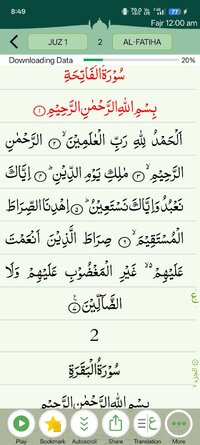 8:49
77
Fajr 12:00 am
JUZ 1
2
AL-FATIHA
Downloading Data
20%
سُوْرَةُ الْفَاتِحَةِ
بِسْمِ اللّٰهِ الرَّحْمٰنِ الرَّحِيْمِ ۝١
اَلْحَمْدُ لِلّٰهِ رَبِّ الْعٰلَمِيْنَ ۙ۝٢ الرَّحْمٰنِ
الرَّحِيْمِ ۙ۝٣ مٰلِكِ يَوْمِ الدِّيْنِ ؕ۝٤ اِيَّاكَ
نَعْبُدُ وَاِيَّاكَ نَسْتَعِيْنُ ؕ۝٥ اِهْدِنَا الصِّرَاطَ
الْمُسْتَقِيْمَ ۙ۝٦ صِرَاطَ الَّذِيْنَ اَنْعَمْتَ
عَلَيْهِمْ ۙ۬ غَيْرِ الْمَغْضُوْبِ عَلَيْهِمْ وَلَا
الضَّآلِّيْنَ ۝٧
2
سُوْرَةُ الْبَقَرَةِ
بِسْمِ اللّٰهِ الرَّحْمٰنِ الرَّحِيْمِ
Play
Bookmark
Autoscroll
Share
Translation
More